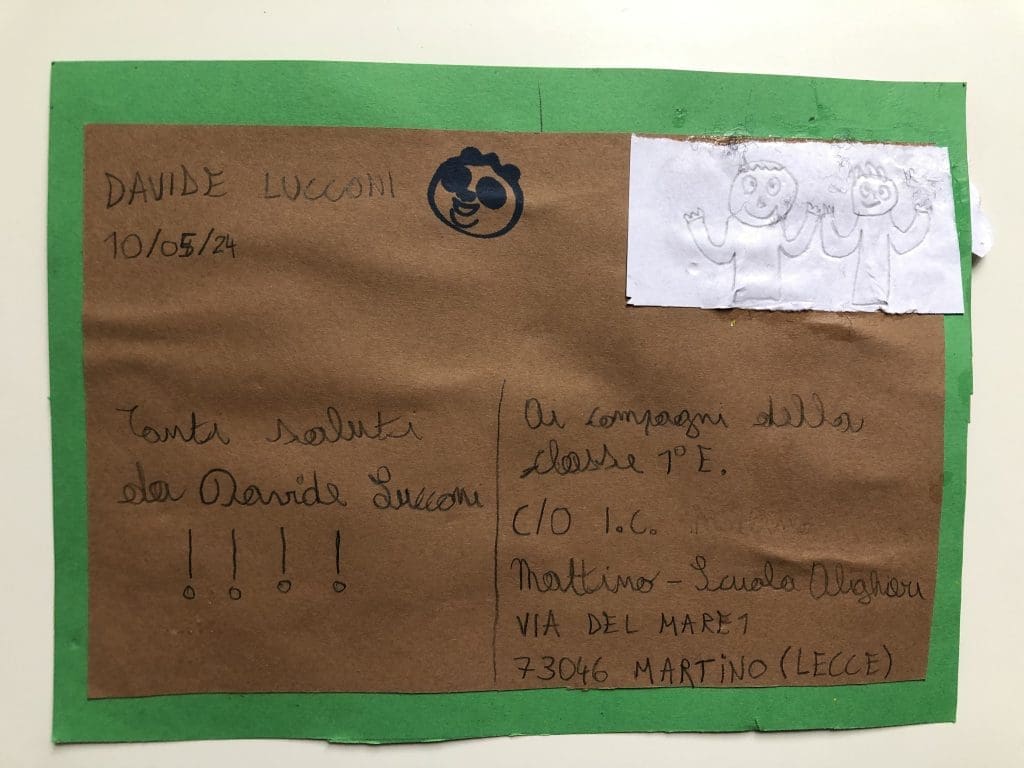 DAVIDE LUCCONI
10/05/24
Tanti saluti
da Davide Lucconi
! ! ! !
Ai compagni della
classe 1° E.
C/O I.C.
Mattino - Scuola Alighieri
VIA DEL MARE 1
73046 MARTiNO (LECCE)